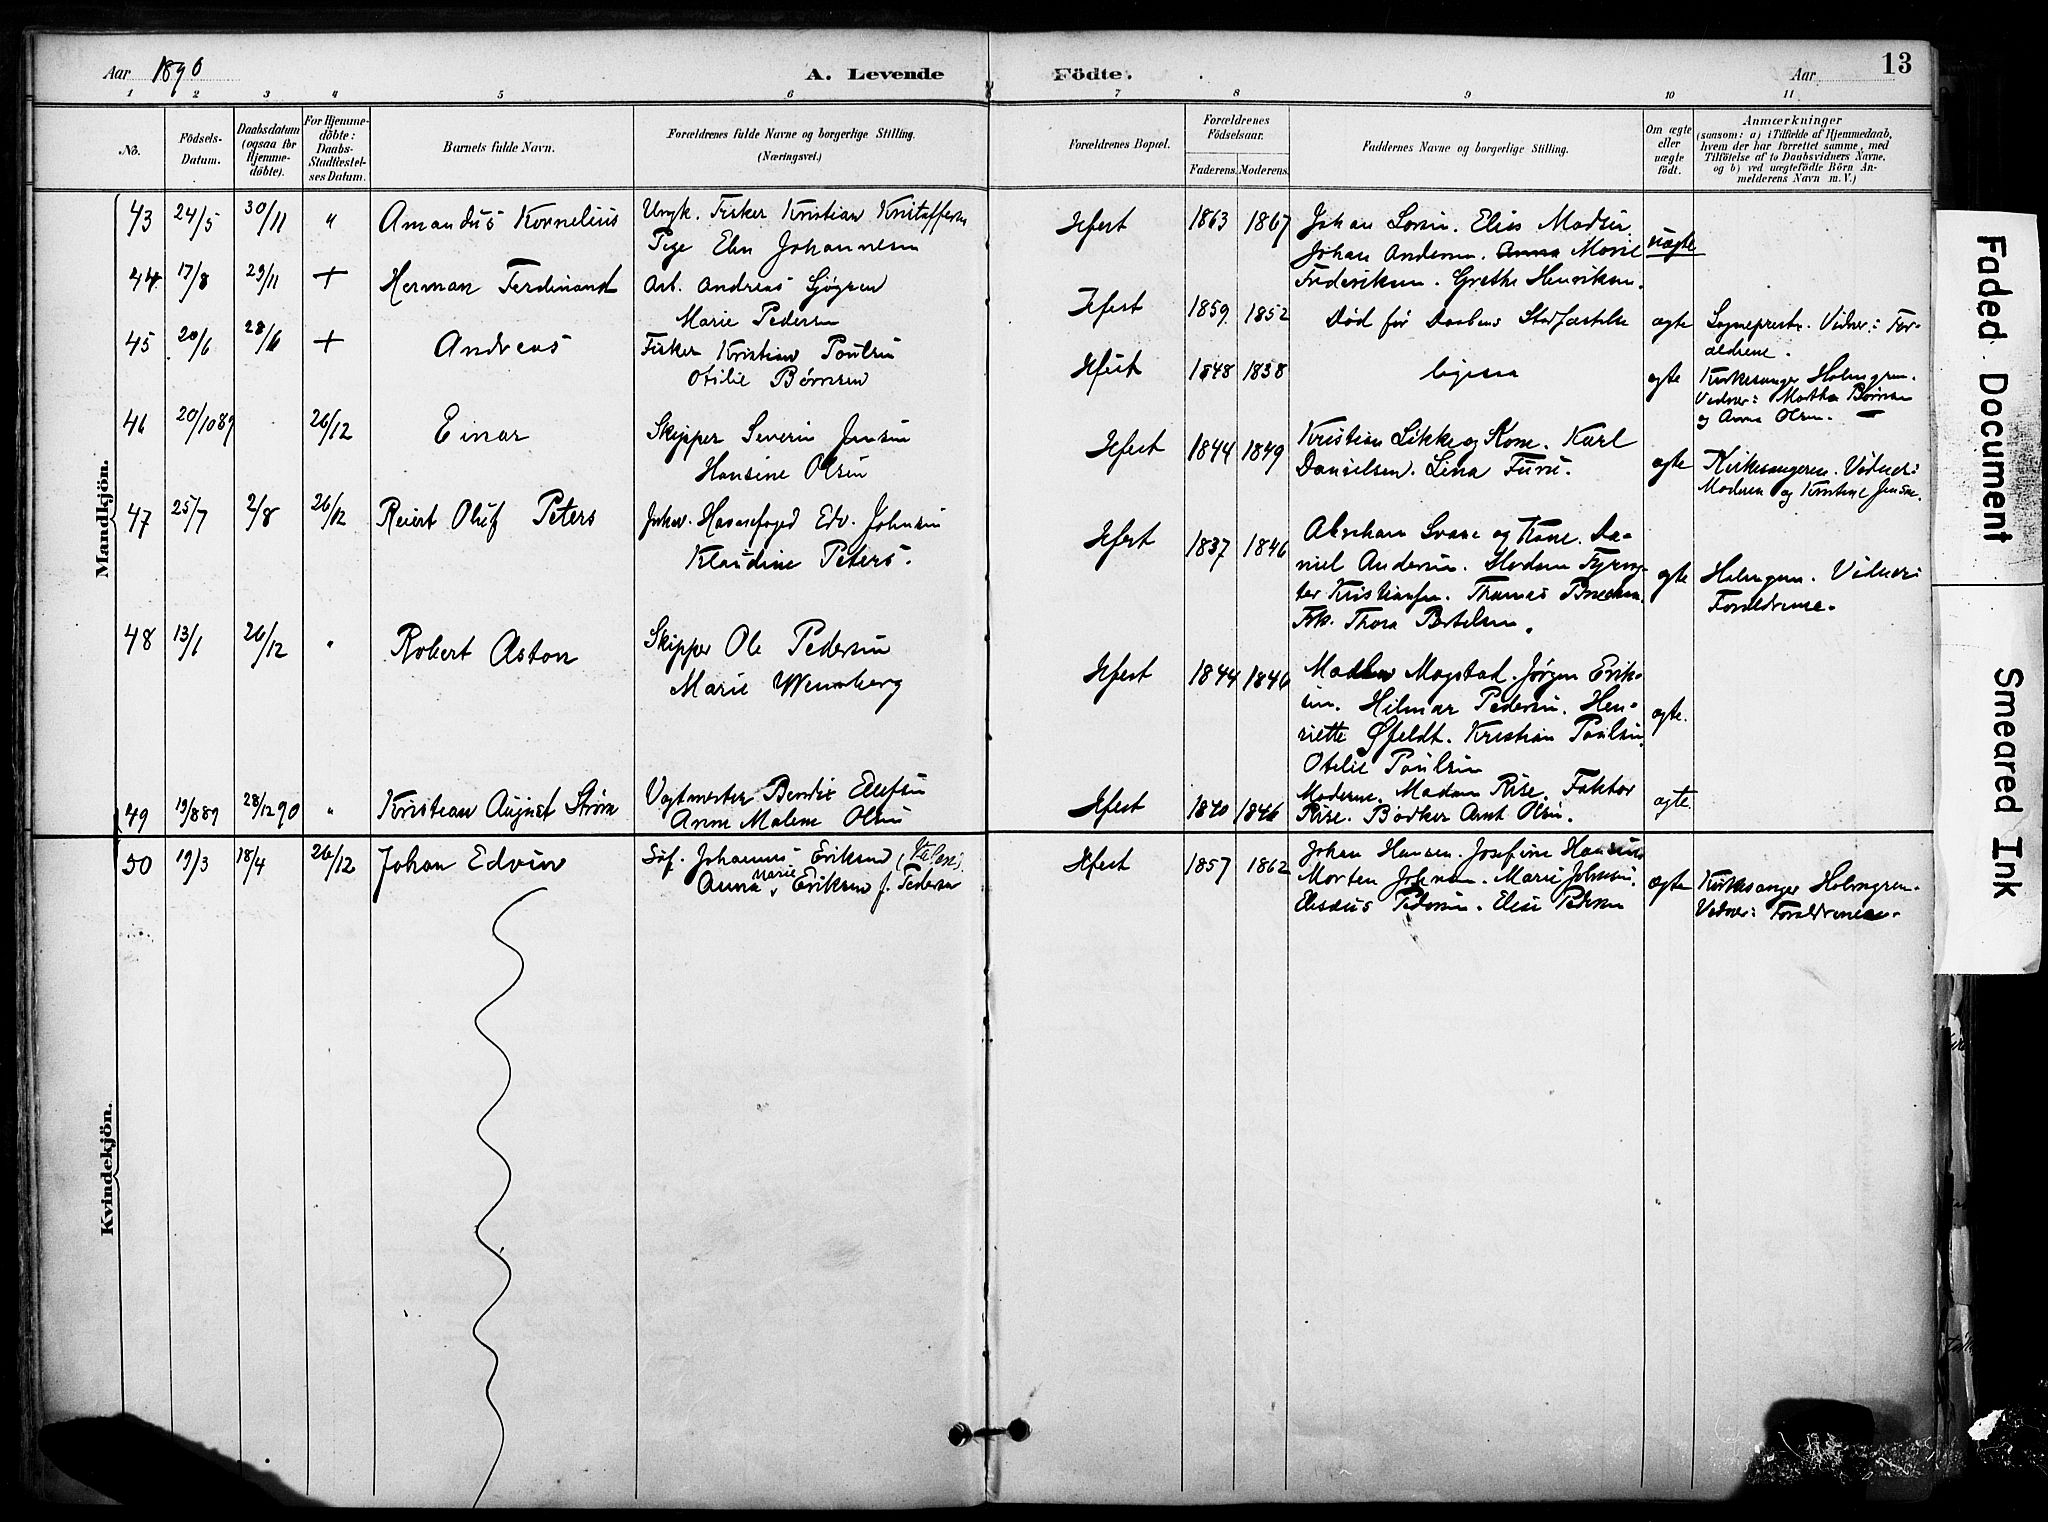 Aar 1890
A. Levende
Födte.
Aar
13
1 2 3 4 5 6 7 8 9 10 11
No.
Födsels-
Datum.
Daabsdatum
(ogsaa for
Hjemme-
döbte).
For Hjemme-
döbte:
Daabs-
Stadfæstel-
ses Datum.
Barnets fulde Navn.
Forældrenes fulde Navne og borgerlige Stilling.
(Næringsvei.)
Forældrenes Bopæl.
Forældrenes
Födselsaar.
Faderens. Moderens.
Faddernes Navne og borgerlige Stilling.
Om ægte
eller
uægte
födt.
Anmærkninger
(saasom: a) i Tilfælde af Hjemmedaab,
hvem der har forrettet samme, med
Tilföielse af to Daabsvidners Navne,
og b) ved uægtefödte Börn An-
melderens Navn m. V.)
Mandkjön.
43 24/5 30/11 " Amandus Kornelius
Ungk. Fisker Kristian Kristoffersen
Pige Elen Johannesen
Hfest 1863 1867
Johan Elias Madsen.
Johan Andersen. Anna Marie
Frederiksen. Grethe Henriksen.
uægte
44 17/8 29/11 + Herman Ferdinand
Arb. Andreas Sjøgren
Marie Pedersen
Hfest 1859 1852
Død før Daabens Stadfæstelse
ægte
Sogneprest. Vidner: For-
ældrene.
45 20/6 28/6 + Andreas
Fisker Kristian Poulsen
Otilie Børresen
Hfest 1848 1838
ligesaa
ægte
Kirkesanger Holmgren.
Vidner: Martha
og Anna Olsen. —
46 20/10 89 26/12 Einar
Skipper Severin Jensen
Hansine Olsen
Hfest 1844 1849
Kristian Likke og Kone. Karl
Danielsen. Lina
ægte
Kirkesangeren. Vidner:
Moderen og Kristine Jensen.
47 25/7 2/8 26/12 Reiert Oluf Peters
Havnefoged Edv. Johnsen
Klaudine Peters.
Hfest 1837 1846
Abraham og Kone. Da-
niel Andersen. Madam Fyrvog-
ter Kristiansen. Thomas
Frk. Thora Bertelsen.
ægte
Holmgren. Vidner:
Forældrene.
48 13/1 26/12 " Robert Aston
Skipper Ole Pedersen
Marie Wennberg
Hfest 1844 1846
Magstad. Jørgen Erik-
sen. Hilmar Pedersen. Hen-
riette Øfeldt. Kristian Poulsen
Otilie Poulsen
ægte.
49 19/8 89 28/12 90 " Kristian August Strøm
Vagtmester Bendix Ellefsen
Anne Malene Olsen
Hfest 1840 1846
Moderen. Madam Rise. Faktor
Rise. Bødker Arnt Olsen.
ægte.
50 19/3 18/4 26/12 Johan Edvin
Søf. Johannes Eriksen
Anna Marie Eriksen f. Pedersen
Hfest 1857 1862
Johan Hansen. Josefine Hansen
Morten Johnsen. Marie Johnsen.
Elisæus Pedersen. Elise Pedersen
ægte
Kirkesanger Holmgren.
Vidner: Forældrene.
Kvindekjön.
Faded Document
Smeared Ink